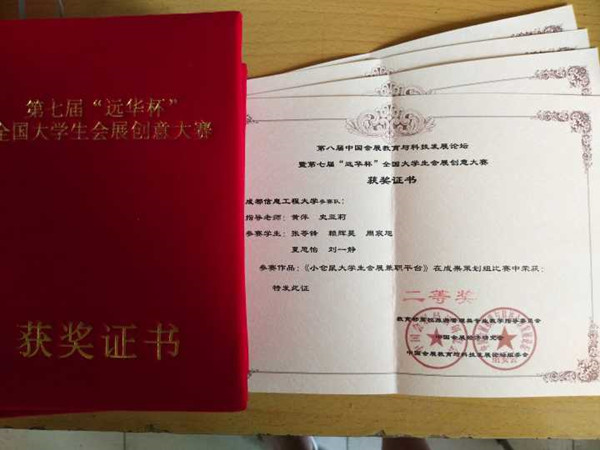 第七届“远华杯”
全国大学生会展创意大赛
获奖证书
第八届中国会展教育与科技发展论坛
暨第七届“远华杯”全国大学生会展创意大赛
获奖证书
成都信息工程大学参赛队：
指导老师：黄萍 史亚莉
参赛学生：张苓锋 赖辉昊 周宸旭
夏思怡 刘一静
参赛作品：《小仓鼠大学生会展兼职平台》在成果策划组比赛中荣获：
二等奖
特发此证
中国会展经济研究会
中国会展教育与科技发展论坛组委会